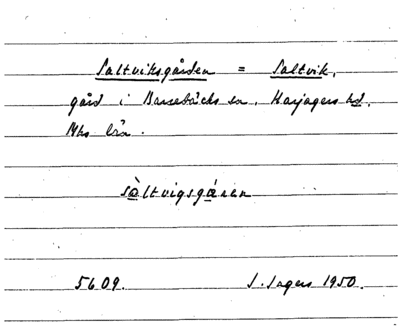 Saltviksgården = Saltvik,
gård i Barsebäcks sn, Harjagers hd.
Mhs län.
sàltvigsgåren
5609. S. Sagers 1950.